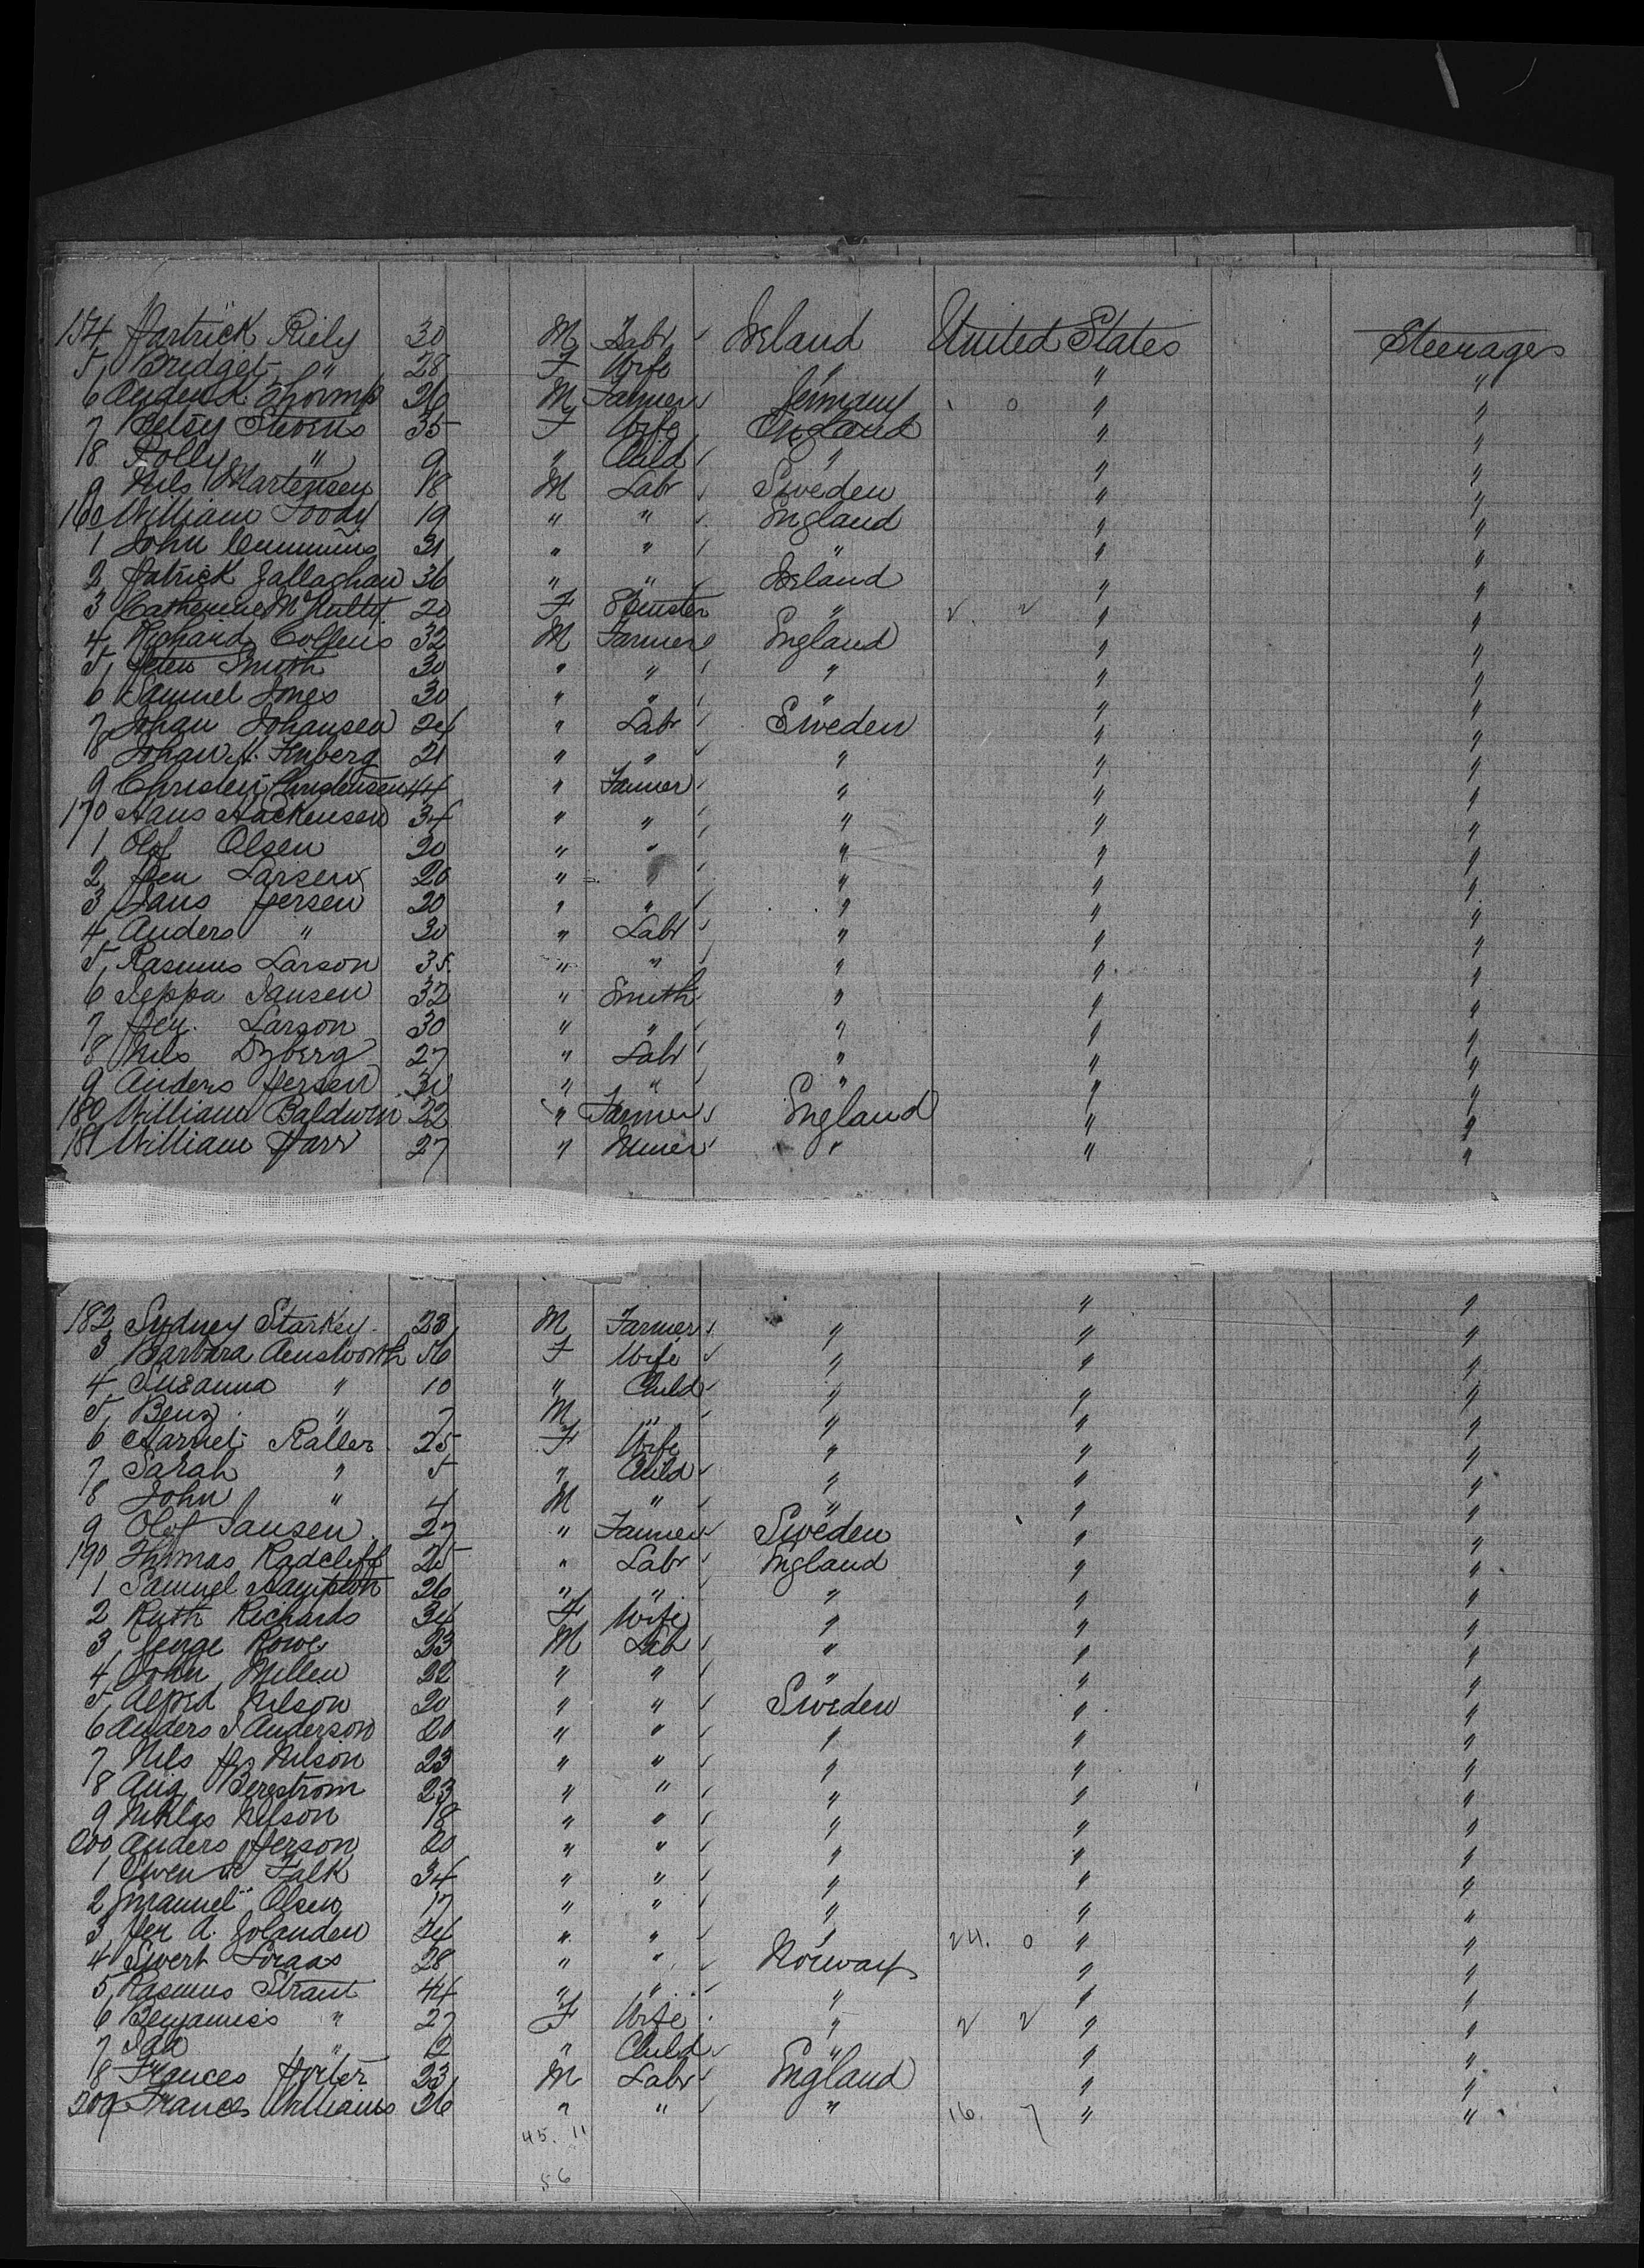 154 Partrick Riely 30 M Labr Ireland United States Steerage
5 Bridget " 28 F Wife " " "
6 26 M Farmer Germany " "
7 Betsy Stevens 35 F Wife England " "
8 Polly " 9 " Child " " "
9 Nils Martensen 18 M Labr Sweden " "
160 William Toody 19 " " England " "
1 John Cummins 31 " " " " "
2 Patrick Gallaghan 36 " " Ireland " "
3 Catherine 20 F " " "
4 Richard Collens 32 M Farmer England " "
5 Peter Smith 30 " " " " "
6 Samuel Jones 30 " " " " "
7 Johan Johansen 24 " Labr Sweden " "
8 Johan 21 " " " " "
9 Christen Christensen 44 " Farmer " " "
170 Hans Hackensen 34 " " " " "
1 Olof Olsen 20 " " " " "
2 Per Larsen 20 " " " " "
3 Hans Persen 20 " " " " "
4 Anders " 30 " Labr " " "
5 Rasmus Larson 35 " " " " "
6 Jeppa Jansen 32 " Smith " " "
7 Per Larson 30 " " " " "
8 Nils 27 " Labr " " "
9 Anders Persen 30 " " " " "
180 William Baldwin 22 " Farmer England " "
181 William Parr 27 " Miner " " "
182 Sydney Starkey 23 M Farmer " " "
3 Barbara Ainsworth 36 F Wife " " "
4 Susanna " 10 " Child " " "
5 Benj " 7 M " " " "
6 Harriet 25 F Wife " " "
7 Sarah " 5 " Child " " "
8 John " 4 M " " " "
9 Olof Jansen 27 " Farmer Sweden " "
190 Thomas Radcliff 25 " Labr England " "
1 Samuel Hampton 26 " " " " "
2 Ruth Richards 34 F Wife " " "
3 George Rowe 23 M Lab " " "
4 John Millen 22 " " " " "
5 Alfred Nilson 20 " " Sweden " "
6 Anders J Anderson 20 " " " " "
7 Nils Ps Nilson 23 " " " " "
8 Aug Bergstrom 23 " " " " "
9 Niklas Nilson 18 " " " " "
200 Anders Person 20 " " " " "
1 Swen Falk 34 " " " " "
2 Emanuel Olsen 17 " " " " "
3 Per A. Jolanden 24 " " " 24. 0 " "
4 Sivert 28 " " Norway " "
5 Rasmus Strant 44 " " " " "
6 " 27 F Wife " 2 2 " "
7 Ida " 2 " Child " " "
8 Frances Porter 23 M Labr England " "
209 Frances Williams 26 " " " 16. 7 " "
45. 11
56